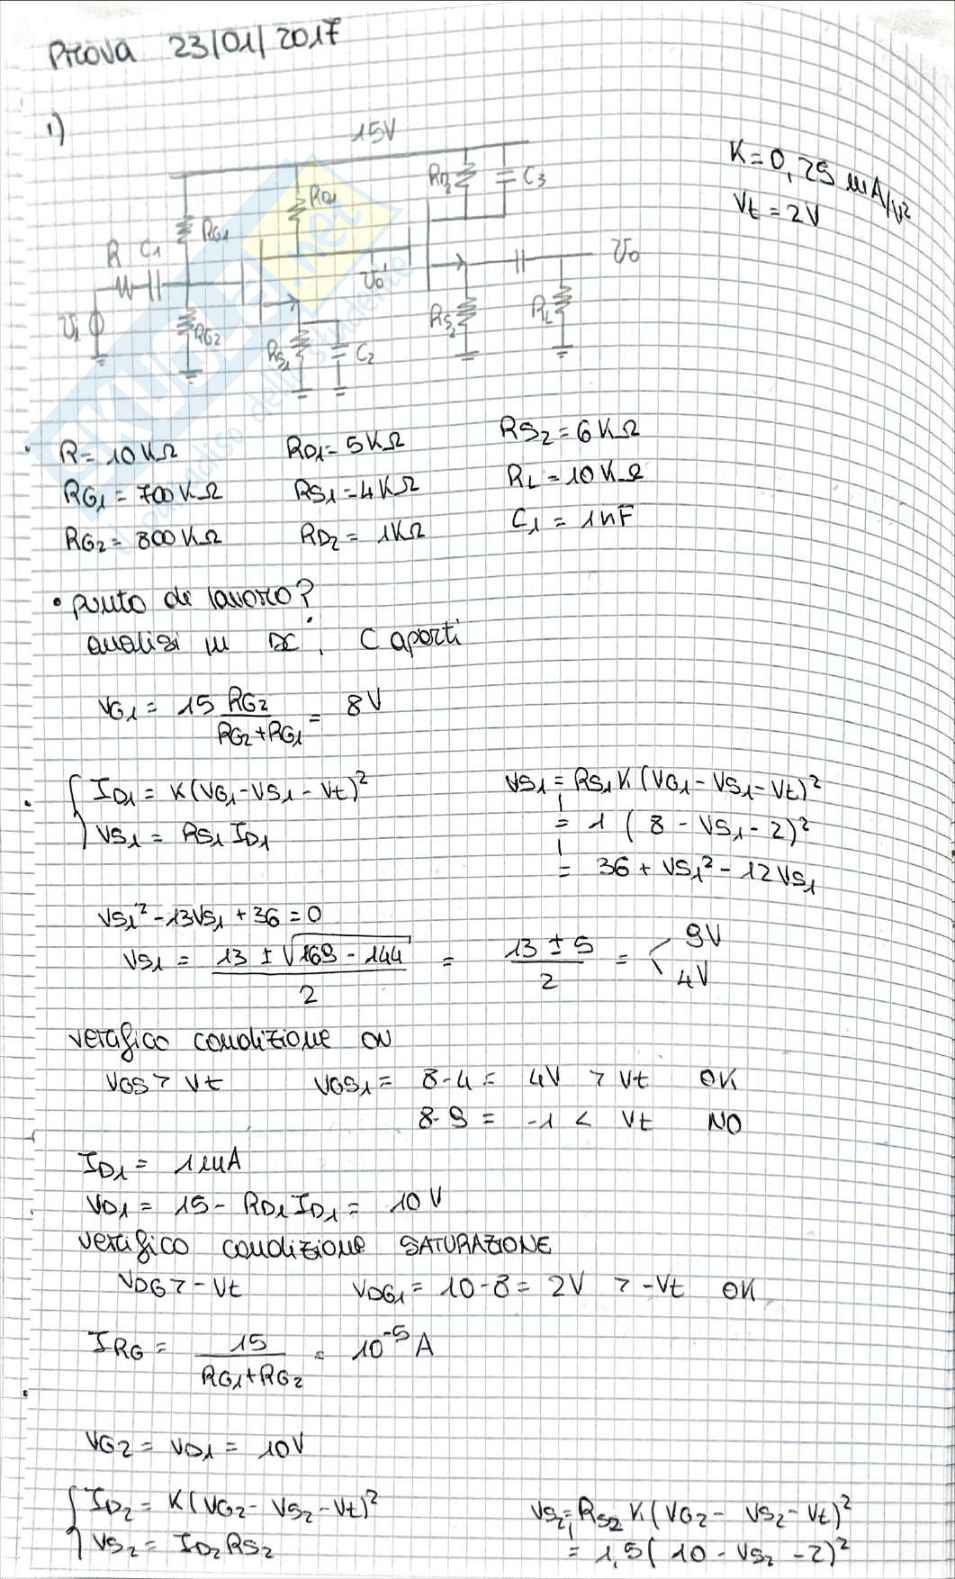 Prova 23/01/2017
1)
15V
K=0,25 mA/V²
Vt = 2V
RD1
RD2
C3
RG1
R C1
Vo'
Vo
Vi
RG2
RS1
C2
RS2
RL
R = 10KΩ
RD1 = 5KΩ
RS2 = 6KΩ
RG1 = 700KΩ
RS1 = 4KΩ
RL = 10KΩ
RG2 = 800KΩ
RD2 = 1KΩ
C1 = 1nF
• punto de lavoro?
analisi in DC, C aperti
VG1 = 15 RG2/(RG2+RG1) = 8V
ID1 = K(VG1-VS1-Vt)²
VS1 = RS1 ID1
VS1 = RS1 K(VG1-VS1-Vt)²
= 1 (8-VS1-2)²
= 36 + VS1² - 12VS1
VS1² - 13VS1 + 36 = 0
VS1 = (13 ± √(169-144))/2 = (13 ± 5)/2 = 9V
4V
verifico condizione ON
VGS > Vt VGS1 = 8-4 = 4V > Vt OK
8-9 = -1 < Vt NO
ID1 = 1mA
VD1 = 15 - RD1 ID1 = 10V
verifico condizione SATURAZIONE
VDG > -Vt VDG1 = 10-8 = 2V > -Vt OK
IRG = 15/(RG1+RG2) = 10⁻⁵ A
VG2 = VD1 = 10V
ID2 = K(VG2-VS2-Vt)²
VS2 = ID2 RS2
VS2 = RS2 K(VG2-VS2-Vt)²
= 1,5(10-VS2-2)²